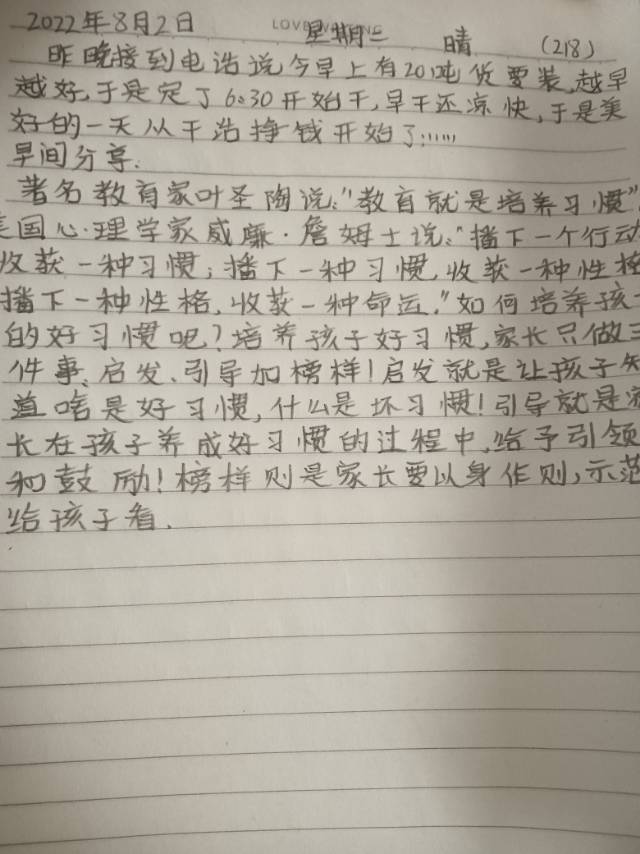 2022年8月2日 星期二 晴 (218)
昨晚接到电话说今早上有20吨货要装,越早
越好,于是定了6:30开始干,早干还凉快,于是美
好的一天从干活挣钱开始了……
早间分享.
著名教育家叶圣陶说:"教育就是培养习惯"
国心理学家威廉·詹姆士说:"播下一个行动
收获一种习惯;播下一种习惯,收获一种性格
播下一种性格,收获一种命运."如何培养孩
的好习惯呢?培养孩子好习惯,家长只做三
件事、启发、引导加榜样!启发就是让孩子知
道啥是好习惯,什么是坏习惯!引导就是家
长在孩子养成好习惯的过程中,给予引领
和鼓励!榜样则是家长要以身作则,示范
给孩子看.